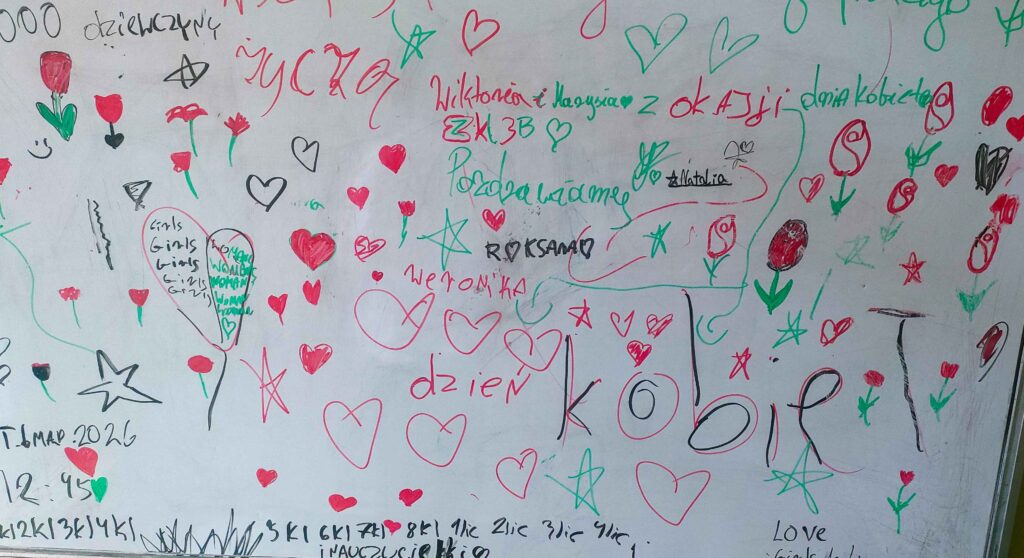 000 dziewczyny
życzą
Wiktoria i Marysia z okazji dnia kobiet
z kl 3B
Pozdrawiamy
Natalia
ROKSANA
Weronika
Girls
Girls
Girls
Girls
Girls
WOMANS
WOMANS
WOMANS
dzień
kobiet
T.6MAP.2026
12:45
2kl 3kl 4kl 5kl 6kl 7kl 8kl 1lic 2lic 3lic 4lic.
i NAUCZYCIELki
LOVE